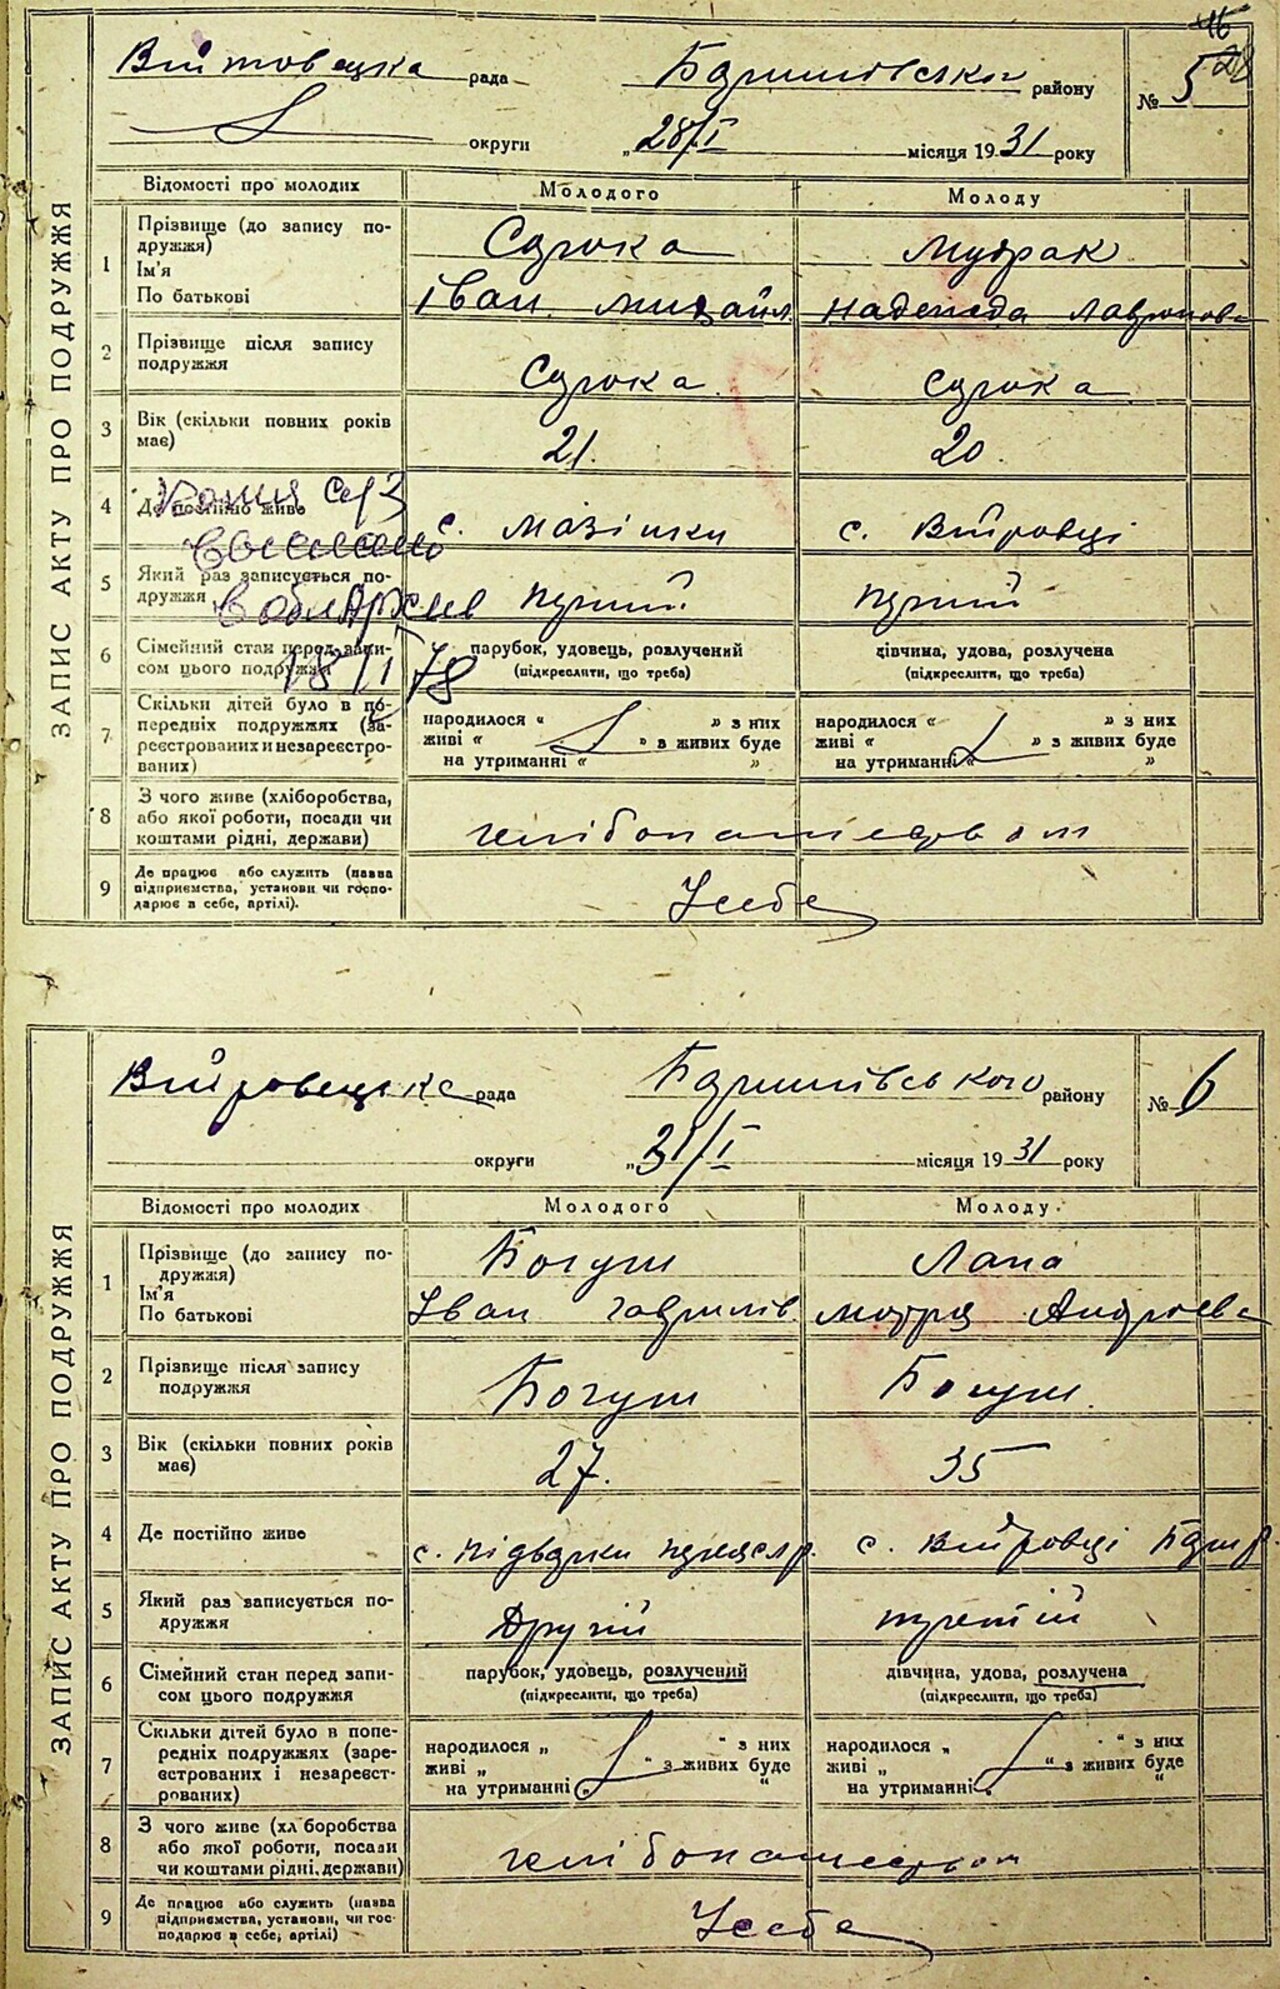 46
28
Війтовецка рада Баришівського району № 5
округи „28/I місяця 1931 року
ЗАПИС АКТУ ПРО ПОДРУЖЖЯ
Відомості про молодих Молодого Молоду
1 Прізвище (до запису по-
дружжя) Сорока Мудрак
Ім'я
По батькові Іван Михайл. Надежда Лавронова
2 Прізвище після запису
подружжя Сорока Сорока
3 Вік (скільки повних років
має) 21. 20.
4 Де постійно живе с. Мазінки с. Війтовці
Копия СвЗ
5 Який раз записується по-
дружжя перший перший
в облархив
6 Сімейний стан перед запи-
сом цього подружжя парубок, удовець, розлучений дівчина, удова, розлучена
(підкреслити, що треба) (підкреслити, що треба)
18/I 78
7 Скільки дітей було в по-
передніх подружжях (за-
реєстрованих и незареєстро-
ваних)
народилося « » з них народилося « » з них
живі « » в живих буде живі « » з живих буде
на утриманні « » на утриманні « »
8 З чого живе (хліборобства,
або якої роботи, посади чи
коштами рідні, держави) хлібопашеством
9 Де працює або служить (назва
підприємства, установи чи госпо-
дарює в себе, артілі). Усебе
Війтовецька рада Баришівського району № 6
округи „31/I місяця 1931 року
ЗАПИС АКТУ ПРО ПОДРУЖЖЯ
Відомості про молодих Молодого Молоду
1 Прізвище (до запису по-
дружжя) Богуш Лапа
Ім'я
По батькові Іван Гаврилів. Мотря Андрієва
2 Прізвище після запису
подружжя Богуш Богуш
3 Вік (скільки повних років
має) 27. 35
4 Де постійно живе с. Підварки Переясл р. с. Війтовці Бар р.
5 Який раз записується по-
дружжя Другій третій
6 Сімейний стан перед запи-
сом цього подружжя парубок, удовець, розлучений дівчина, удова, розлучена
(підкреслити, що треба) (підкреслити, що треба)
7 Скільки дітей було в попе-
редніх подружжях (заре-
єстрованих і незареєст-
рованих)
народилося „ “ з них народилося „ “ з них
живі „ “ з живих буде живі „ “ з живих буде
на утриманні „ “ на утриманні „ “
8 З чого живе (хл боробства
або якої роботи, посади
чи коштами рідні, держави) хлібопашеством
9 Де працює або служить (назва
підприємства, установи, чи гос-
подарює в себе, артілі) Усебе